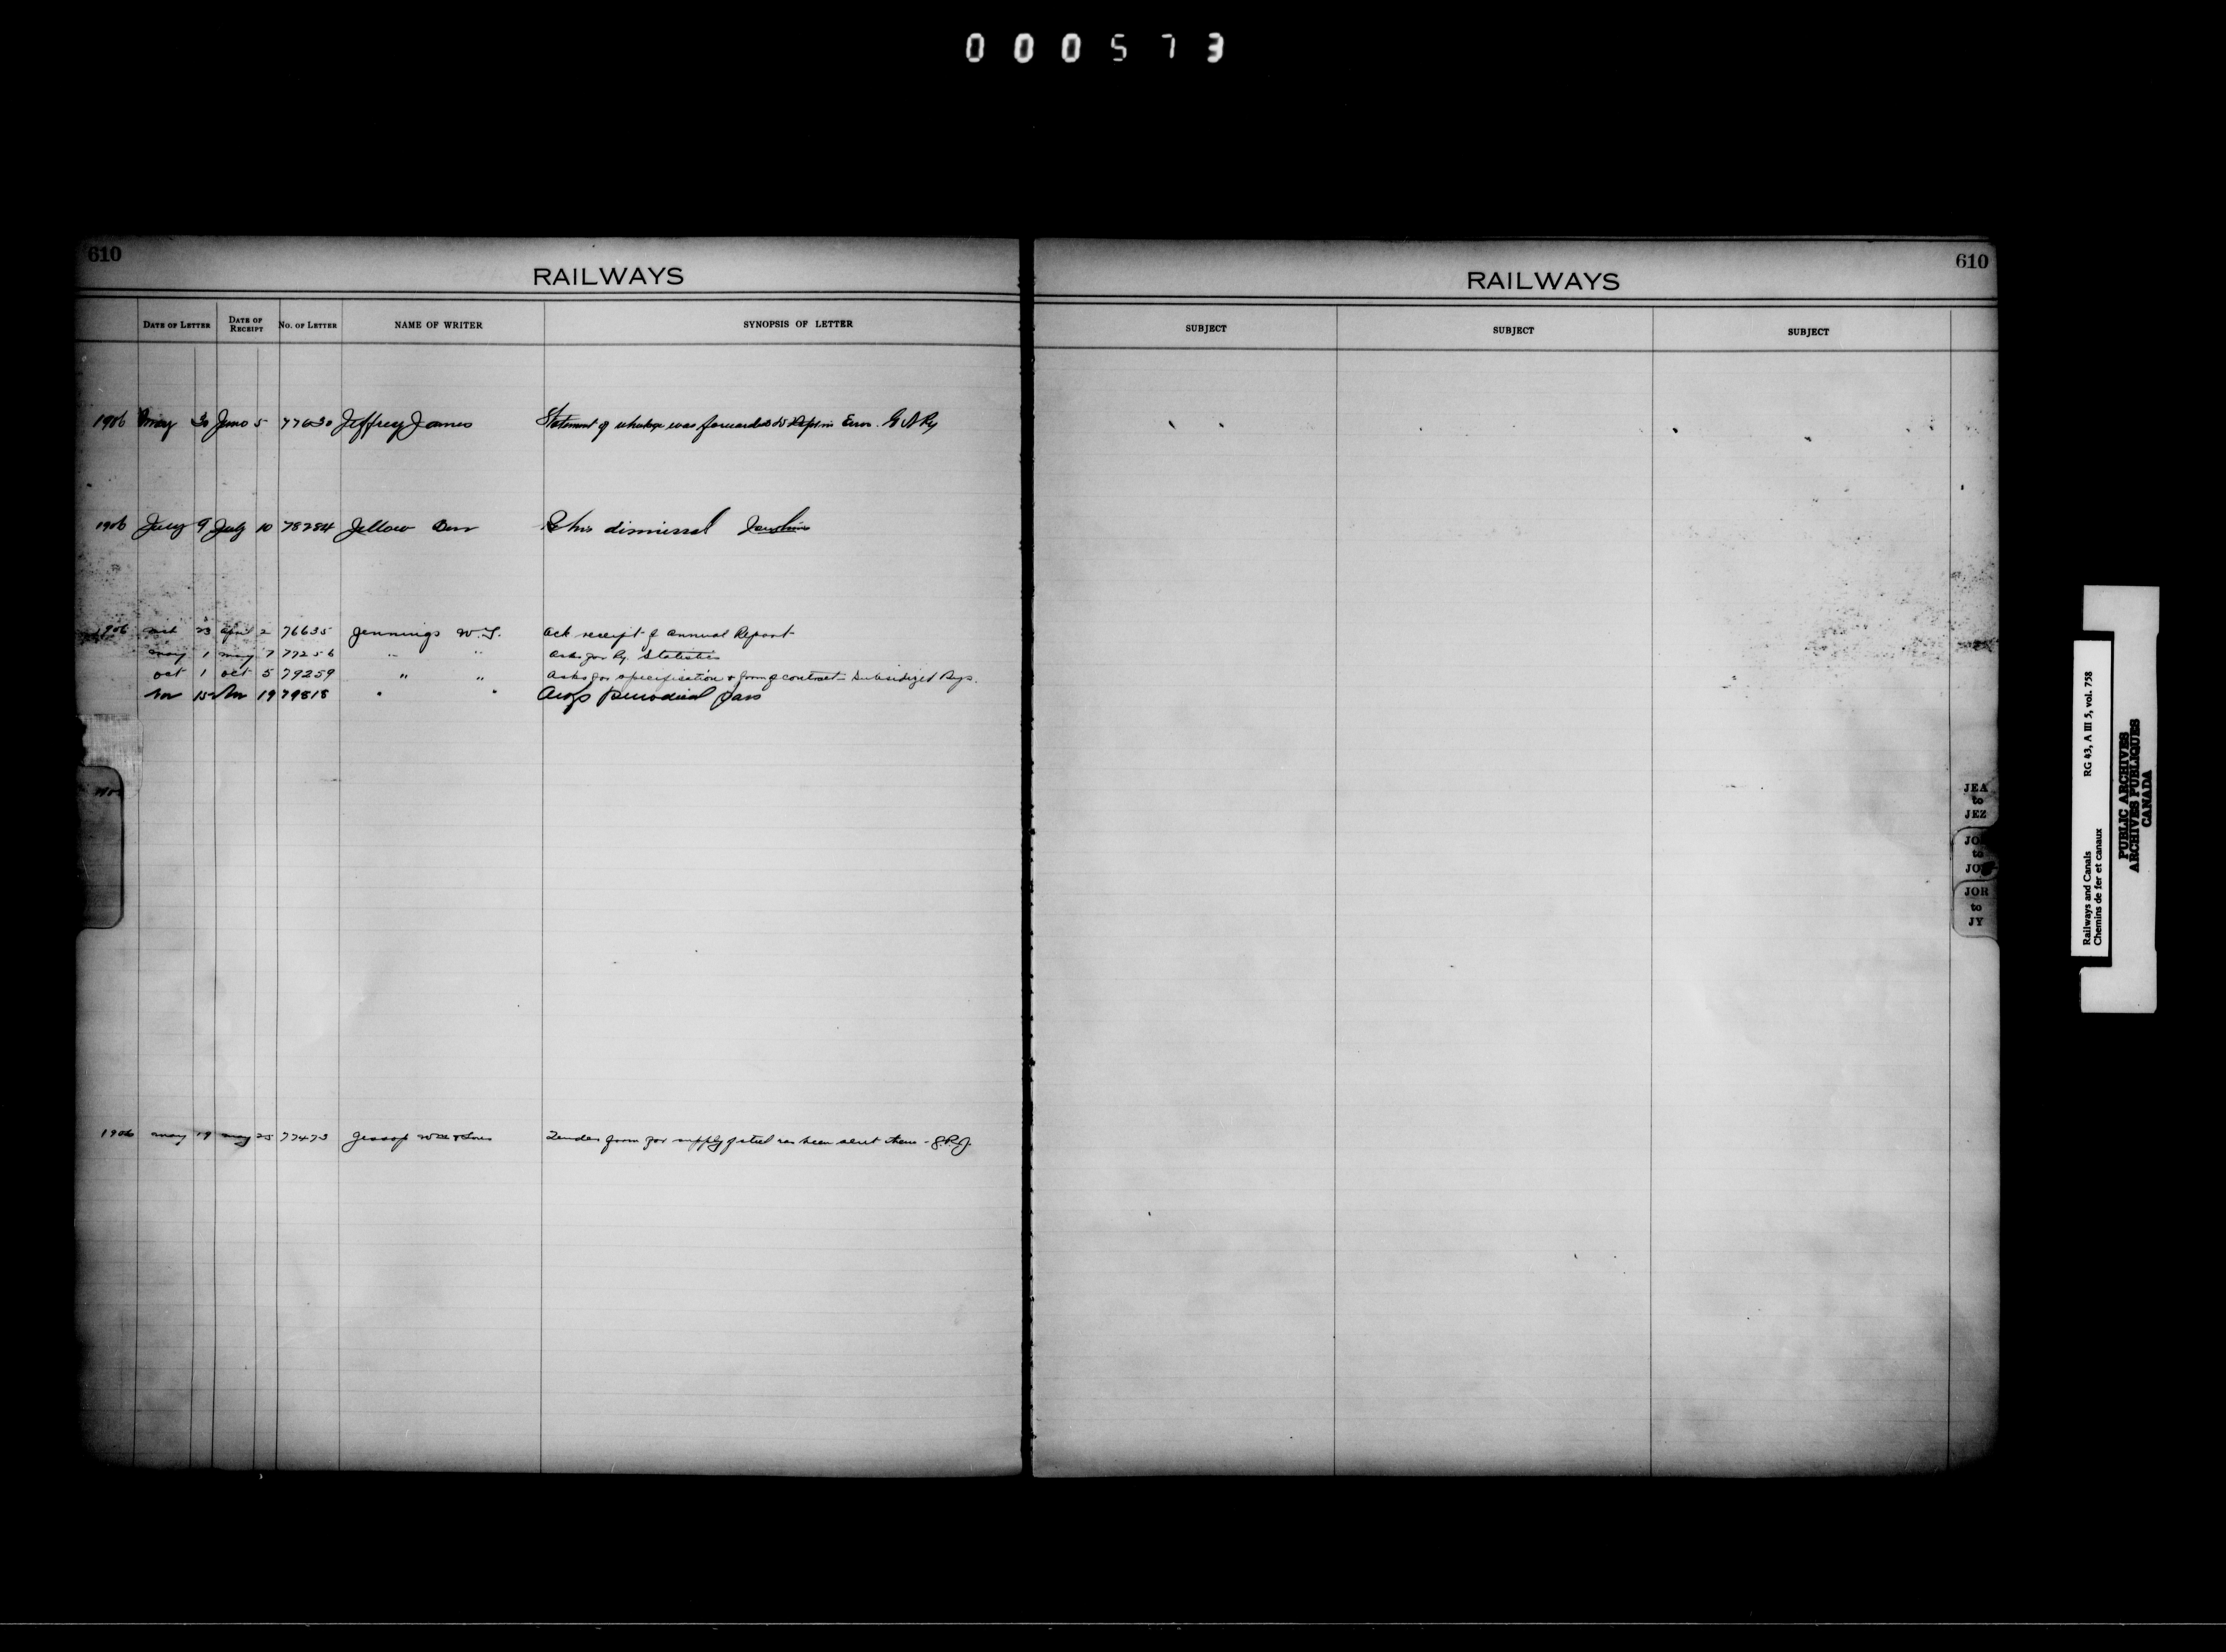 000573
610
RAILWAYS
DATE OF LETTER DATE OF RECEIPT NO. OF LETTER NAME OF WRITER SYNOPSIS OF LETTER
1906 May 30 June 5 77630 Jeffrey James Statement of was forwarded to Dept in Error.
1906 July 9 July 10 78284 Jellow Re his dismissal
1906 Mch 23 April 2 76635 Jennings W.T. Ack receipt of Annual Report
May 1 May 7 77256 " " Asks for Ry. Statistics
Oct 1 Oct 5 79259 " " Asks for specification & form of contract - Subsidized Rys.
Nov 15 Nov 19 79818 " " Periodical Pass
1906 May 19 May 25 77473 Jessop Wm & Sons Tender form for supply of steel has been sent them -
610
RAILWAYS
SUBJECT SUBJECT SUBJECT
JEA
to
JEZ
to
JOR
to
JY
Railways and Canals RG 43, A III 5, vol. 758
Chemins de fer et canaux
PUBLIC ARCHIVES
ARCHIVES PUBLIQUES
CANADA